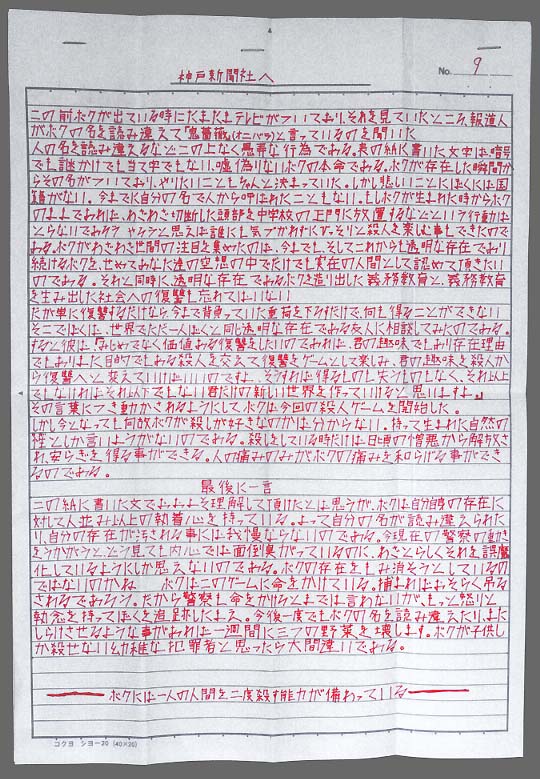 No. 9
神戸新聞社へ
この前ボクが出ている時にたまたまテレビがついており、それを見ていたところ、報道人
がボクの名を読み違えて「鬼薔薇」(オニバラ)と言っているのを聞いた
人の名を読み違えるなどこの上なく愚弄な行為である。表の紙に書いた文字は、暗号
でも謎かけでも当て字でもない、嘘偽りないボクの本命である。ボクが存在した瞬間か
らその名がついており、やりたいこともちゃんと決まっていた。しかし悲しいことにぼくには国
籍がない。今までに自分の名で人から呼ばれたこともない。もしボクが生まれた時からボク
のままであれば、わざわざ切断した頭部を中学校の正門に放置するなどという行動はと
らないであろう やろうと思えば誰にも気づかれずにひっそりと殺人を楽しむ事もできたので
ある。ボクがわざわざ世間の注目を集めたのは、今までも、そしてこれからも透明な存在であり
続けるボクを、せめてあなた達の空想の中でだけでも実在の人間として認めて頂きたい
のである。それと同時に、透明な存在であるボクを造り出した義務教育と、義務教育
を生み出した社会への復讐も忘れてはいない
だが単に復讐するだけなら、今まで背負っていた重荷を下ろすだけで、何も得ることができない
そこでぼくは、世界でただ一人ぼくと同じ透明な存在である友人に相談してみたのである。
すると彼は、「みじめでなく価値ある復讐をしたいのであれば、君の趣味でもあり存在理由
でもありまた目的でもある殺人を交えて復讐をゲームとして楽しみ、君の趣味を殺人か
ら復讐へと変えていけばいいのですよ、そうすれば得るものも失うものもなく、それ以上
でもなければそれ以下でもない君だけの新しい世界を作っていけると思いますよ。」
その言葉につき動かされるようにしてボクは今回の殺人ゲームを開始した。
しかし今となっても何故ボクが殺しが好きなのかは分からない。持って生まれた自然の
性としか言いようがないのである。殺しをしている時だけは日頃の憎悪から解放さ
れ、安らぎを得る事ができる。人の痛みのみが、ボクの痛みを和らげる事ができ
るのである。
最後に一言
この紙に書いた文でおおよそ理解して頂けたとは思うが、ボクは自分自身の存在に
対して人並み以上の執着心を持っている。よって自分の名が読み違えられた
り、自分の存在が汚される事には我慢ならないのである。今現在の警察の動き
をうかがうと、どう見ても内心では面倒臭がっているのに、わざとらしくそれを誤魔
化しているようにしか思えないのである。ボクの存在をもみ消そうとしているの
ではないのかね ボクはこのゲームに命をかけている。捕まればおそらく吊る
されるであろう。だから警察も命をかけろとまでは言わないが、もっと怒りと
執念を持ってぼくを追跡したまえ。今後一度でもボクの名を読み違えたり、また
しらけさせるような事があれば一週間に三つの野菜を壊します。ボクが子供し
か殺せない幼稚な犯罪者と思ったら大間違いである。
ボクには一人の人間を二度殺す能力が備わっている
コクヨ ショー20 (40×20)